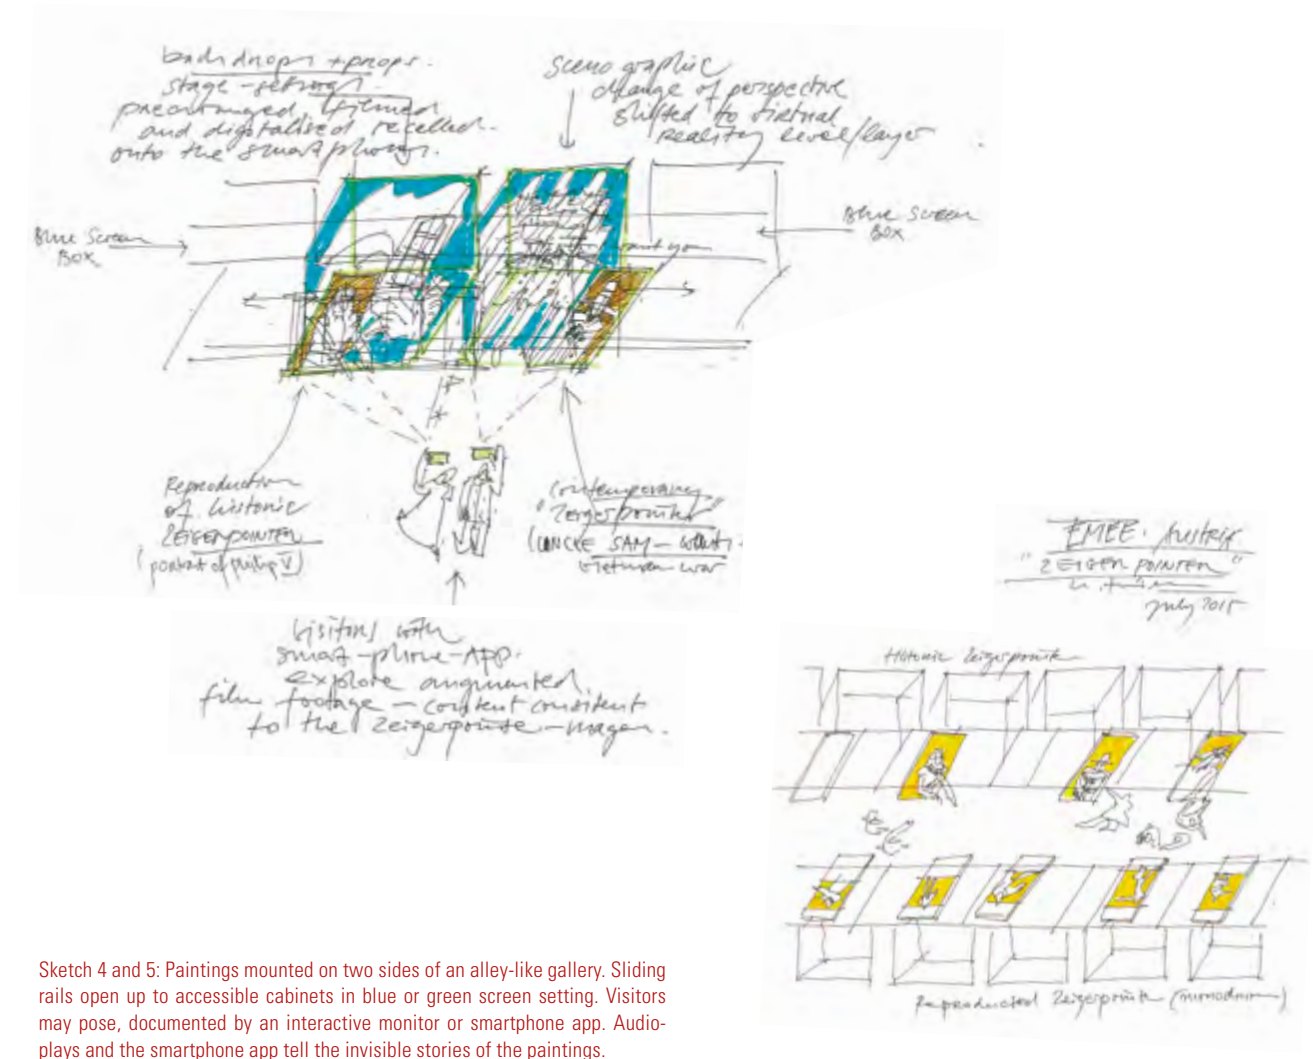 backdrops + props.
stage-settings
prearranged, filmed
and digitalised recalled
onto the smartphones.
scenographic
change of perspective
shifted to virtual
reality level/layer
Blue Screen
Box
Blue Screen
Box
want you
Reproduction
of historic
ZEIGERPOINTER
(portrait of Philip V)
Contemporary
"Zeigerpointer"
(UNCLE SAM – want
Vietnam war
visitors with
smart-phone-APP.
explore augmented
film footage – content consistent
to the Zeigerpointe-images.
EMEE. Austria
"ZEIGERPOINTER"
July 2015
Historic Zeigerpointe
Reproducted Zeigerpointe
Sketch 4 and 5: Paintings mounted on two sides of an alley-like gallery. Sliding
rails open up to accessible cabinets in blue or green screen setting. Visitors
may pose, documented by an interactive monitor or smartphone app. Audio-
plays and the smartphone app tell the invisible stories of the paintings.